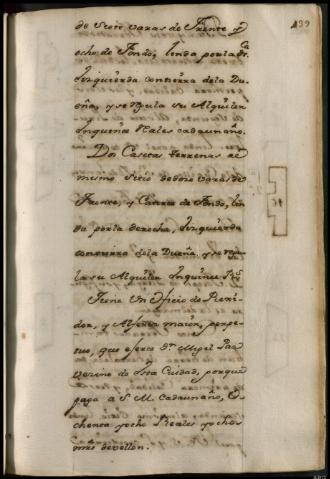 199
de Siete varas de Frente y
ocho de Fondo, linda por la dra.
Izquierda con tierra de la Du-
eña, y se regula su Alquiler
en quinze Reales cada un año.
Dos Casitas terrenas al
mesmo Sitio de doze varas de
Frente, y Catorze de Fondo, lin-
da por la derecha, Izquierda
con tierra de la Dueña, y se regu-
la su Alquiler en quinze Rs.
Tiene Un Oficio de Rexi-
dor, y Alferez maior, perpe-
tuo, que ejerce Dn. Miguel
de esta Ciudad, porque
paga a S. M. Cada un año, O-
chenta y ocho Reales y ocho
mrs. de vellon.